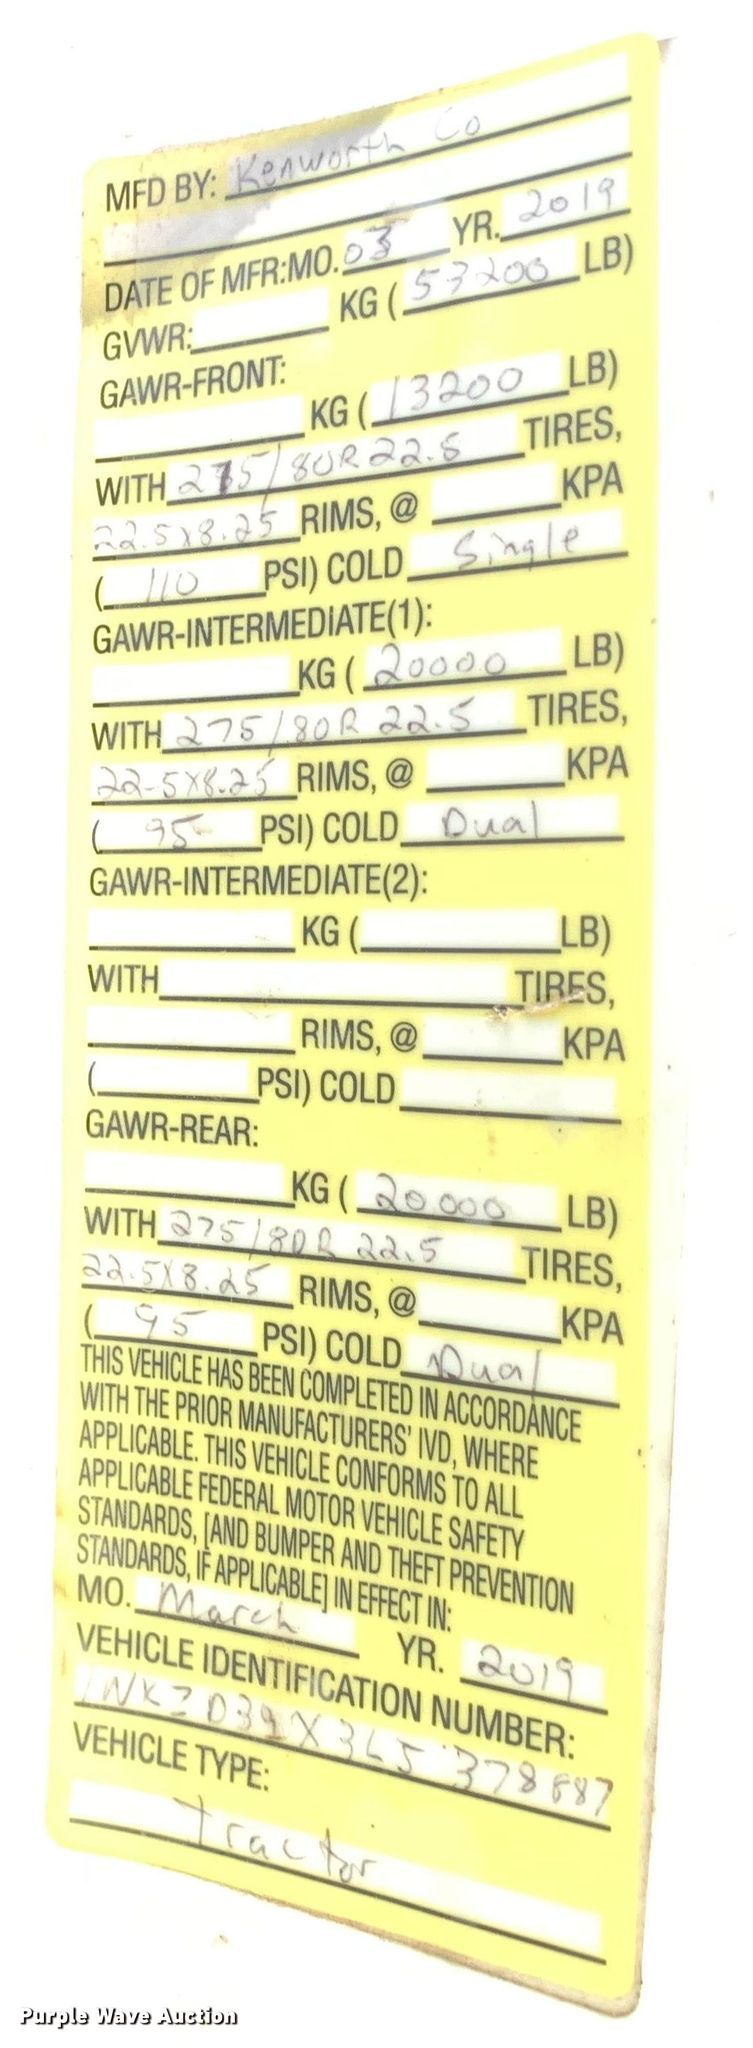 MFD BY: Kenworth Co
DATE OF MFR:MO. 03 YR. 2019
GVWR: KG ( 53200 LB)
GAWR-FRONT:
KG ( 13200 LB)
WITH 275/80R 22.5 TIRES,
22.5x8.25 RIMS, @ KPA
( 110 PSI) COLD Single
GAWR-INTERMEDIATE(1):
KG ( 20000 LB)
WITH 275/80R 22.5 TIRES,
22.5x8.25 RIMS, @ KPA
( 95 PSI) COLD Dual
GAWR-INTERMEDIATE(2):
KG ( LB)
WITH TIRES,
RIMS, @ KPA
( PSI) COLD
GAWR-REAR:
KG ( 20000 LB)
WITH 275/80R 22.5 TIRES,
22.5x8.25 RIMS, @ KPA
( 95 PSI) COLD Dual
THIS VEHICLE HAS BEEN COMPLETED IN ACCORDANCE
WITH THE PRIOR MANUFACTURERS' IVD, WHERE
APPLICABLE. THIS VEHICLE CONFORMS TO ALL
APPLICABLE FEDERAL MOTOR VEHICLE SAFETY
STANDARDS, [AND BUMPER AND THEFT PREVENTION
STANDARDS, IF APPLICABLE] IN EFFECT IN:
MO. March YR. 2019
VEHICLE IDENTIFICATION NUMBER:
VEHICLE TYPE:
Tractor
Purple Wave Auction